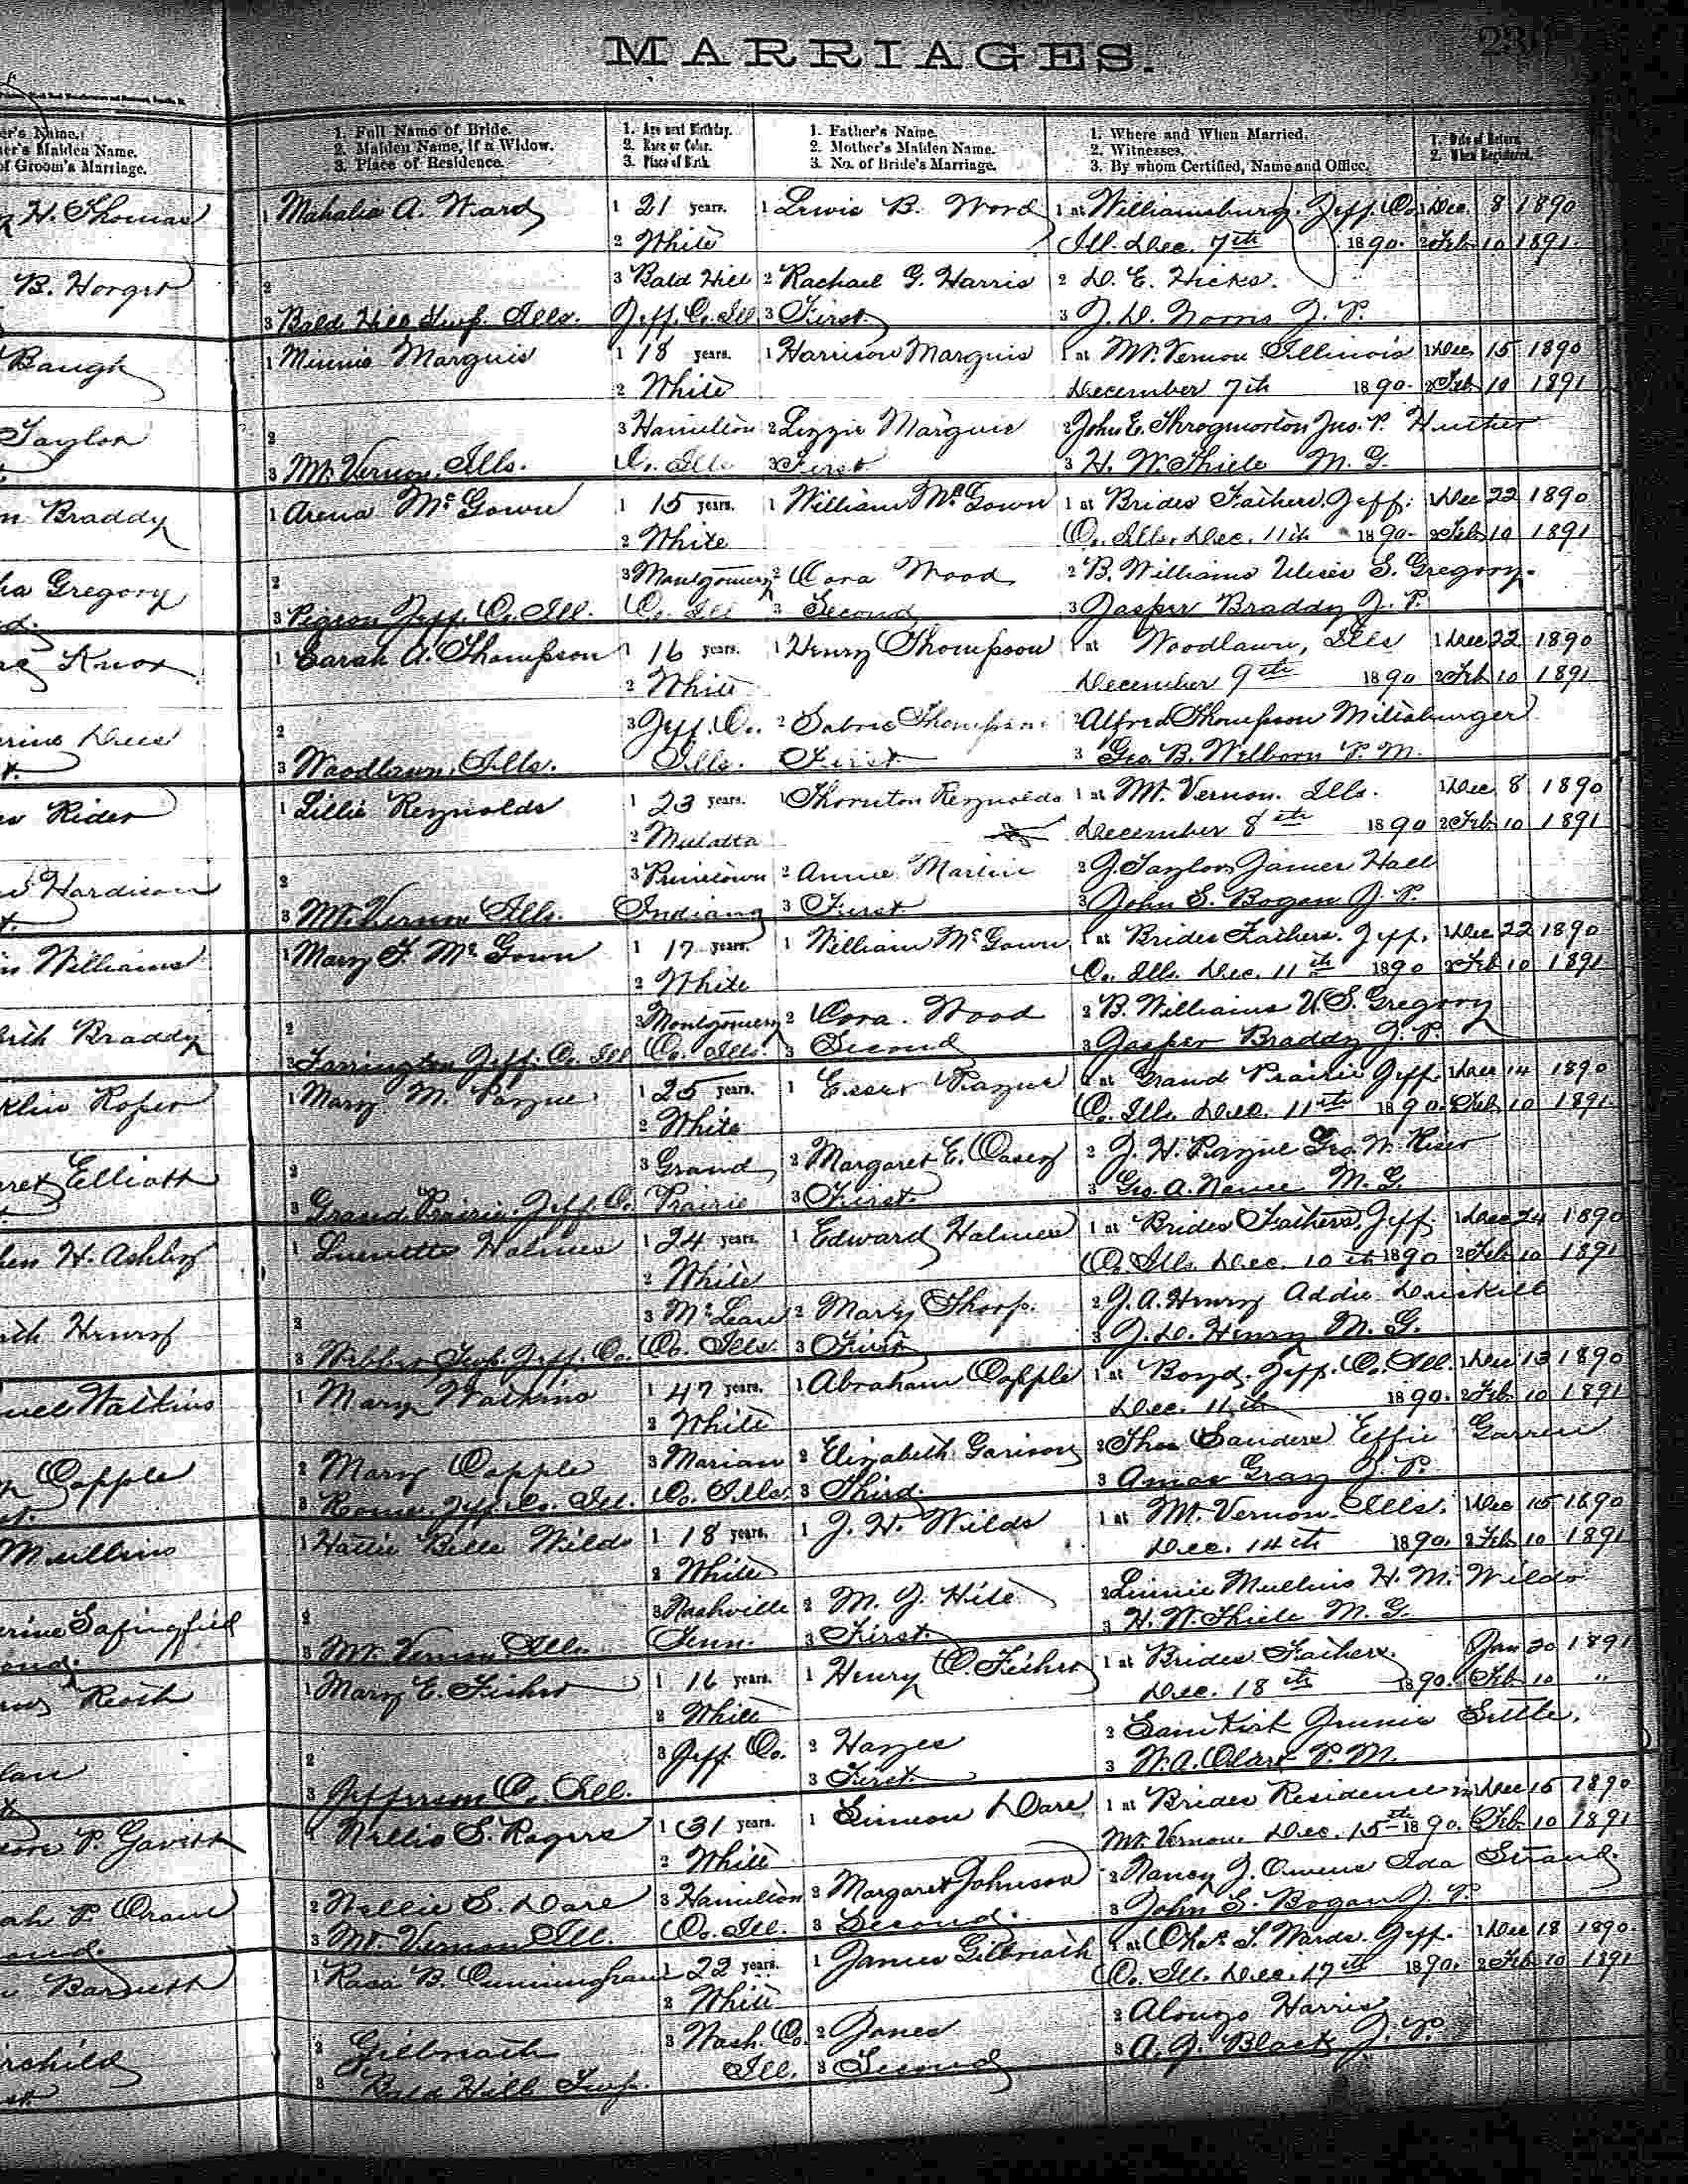 MARRIAGES.
er's Name.
er's Maiden Name.
of Groom's Marriage.
1. Full Name of Bride.
2. Maiden Name, if a Widow.
3. Place of Residence.
1. Age next Birthday.
2. Race or Color.
3. Place of Birth.
1. Father's Name.
2. Mother's Maiden Name.
3. No. of Bride's Marriage.
1. Where and When Married.
2. Witnesses.
3. By whom Certified, Name and Office.
1. Date of Return.
2. When Registered.
H. Thomas 1 Mahalia A. Ward 1 21 years. 1 Lewis B. Word 1 at Williamsburg. Jeff. Co. 1 Dec. 8 1890
2 White Ill. Dec. 7th 1890. 2 Feb 10 1891.
B. Horger 2 3 Bald Hill 2 Rachael G. Harris 2 D. E. Hicks.
3 Bald Hill Twp. Ills. Jeff. Co. Ill. 3 First 3 J. D. Norris J. P.
Baugh 1 Minnie Marquis 1 18 years. 1 Harrison Marquis 1 at Mt. Vernon Illinois 1 Dec 15 1890
2 White December 7th 1890. 2 Feb. 10 1891
Taylor 2 3 Hamilton 2 Lizzie Marquis 2 John E. Throgmorton Jno. P.
3 Mt. Vernon, Ills. Co. Ills 3 First 3 H. W. Thiele M. G.
n Braddy 1 Arena McGown 1 15 years. 1 William McGown 1 at Brides Fathers. Jeff. 1 Dec 22 1890
2 White Co. Ills. Dec. 11th 1890. 2 Feb 10 1891
ha Gregory 2 3 Montgomery 2 Cora Wood 2 B. Williams S. Gregory.
3 Pigeon Jeff. Co. Ill. Co. Ill 3 Second 3 Jasper Braddy J. P.
Knox 1 Sarah A. Thompson 1 16 years. 1 Henry Thompson 1 at Woodlawn, Ills 1 Dec 22 1890
2 White December 9th 1890 2 Feb 10 1891
erine Dees 2 3 Jeff. Co. 2 Thompson 2 Alfred Thompson
3 Woodlawn, Ills. Ills. First 3 Geo. B. Welborn P. M.
Rider 1 Lillie Reynolds 1 23 years. 1 Thornton Reynolds 1 at Mt. Vernon. Ills. 1 Dec. 8 1890
2 Mulatta December 8th 1890 2 Feb. 10 1891
Hardison 2 3 Princtown 2 Annie Martin 2 J. Taylor, James Hall
3 Mt. Vernon Ills. Indiana 3 First 3 John S. Bogan J. P.
Williams 1 Mary F. McGown 1 17 years. 1 William McGown 1 at Brides Fathers. Jeff. 1 Dec 22 1890
2 White Co. Ills. Dec. 11th 1890 2 Feb 10 1891
Braddy 2 3 Montgomery 2 Cora. Wood 2 B. Williams U. S. Gregory
3 Farrington Jeff. Co. Ill Co. Ills. 3 Second 3 Jasper Braddy J. P.
klin Roper 1 Mary M. Payne 1 25 years. 1 Payne 1 at Grand Prairie Jeff. 1 Dec 14 1890
2 White Co. Ill. Dec. 11th 1890. Feb. 10 1891.
ret Elliott 2 3 Grand 2 Margaret E. Casey 2 J. H. Payne Geo. W.
3 Grand Prairie. Jeff. Co. Prairie 3 First. 3 Geo. A. M. G.
H. Ashley 1 Holmes 1 24 years. 1 Edward Holmes 1 at Brides Fathers, Jeff. 1 Dec 24 1890
2 White Co. Ills. Dec. 10th 1890 2 Feb. 10 1891
Henry 2 3 McLean 2 Mary Thorp. 2 J. A. Henry Addie Driskill
3 Webber Twp. Jeff. Co. Co. Ills. 3 First 3 J. D. Henry M. G.
uel Watkins 1 Mary Watkins 1 47 years. 1 Abraham Copple 1 at Boyd. Jeff. Co. Ill. 1 Dec 13 1890
2 White Dec. 11th 1890. 2 Feb. 10 1891
Copple 2 Mary Copple 3 Marian 2 Elizabeth Garison 2 Thos Sanders Effie Garren
3 Rome. Jeff. Co. Ill. Co. Ills. 3 Third. 3 Amos Gray J. P.
Mullins 1 Hattie Belle Wilds 1 18 years. 1 J. H. Wilds 1 at Mt. Vernon. Ills. 1 Dec 15 1890
2 White Dec. 14th 1890. 2 Feb. 10 1891
2 3 Nashville 2 M. J. Hite 2 Linnie Mullins H. M. Wilds
3 Mt. Vernon Ill. Tenn. 3 First. 3 H. W. Thiele M. G.
1 Mary E. Fisher 1 16 years. 1 Henry C. Fisher 1 at Brides Fathers. Jan 20 1891
2 White Dec. 18th 1890. Feb 10 "
2 3 Jeff. Co. 2 Hayes 2 Sam Kirk Settle.
3 Jefferson Co. Ill. 3 First 3 W. A. Clark P. M.
P. Gavitt 1 Nellie S. Rogers 1 31 years. 1 Simeon Dare 1 at Brides Residence in Dec 15 1890
2 White Mt. Vernon. Dec. 15th 1890. Feb 10 1891
ah P. Crain 2 Nellie S. Dare 3 Hamilton 2 Margaret Johnson 2 Nancy J. Owens Ida Strand.
3 Mt. Vernon Ill. Co. Ill. 3 Second. 3 John S. Bogan J. P.
Barnett 1 Rosa B. Cunningham 1 22 years. 1 James Gilbreath 1 at Chas. T. Wards. Jeff. 1 Dec 18 1890.
2 White Co. Ill. Dec. 17th 1890. 2 Feb 10 1891
irchild 2 Gilbreath 3 Wash. Co. 2 Jones 2 Alonzo Harris
3 Bald Hill Twp. Ill. 3 Second 3 A. J. Black J. P.